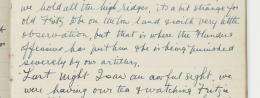 we hold all the high ridges, it's a bit strange for
old Fritz to be on low land & with very little
observation, but that is where the Flanders
offensive has put him & he is being punished
severely by our artillery.
Last night I saw an awful sight, we
were having our tea & watching Fritz's